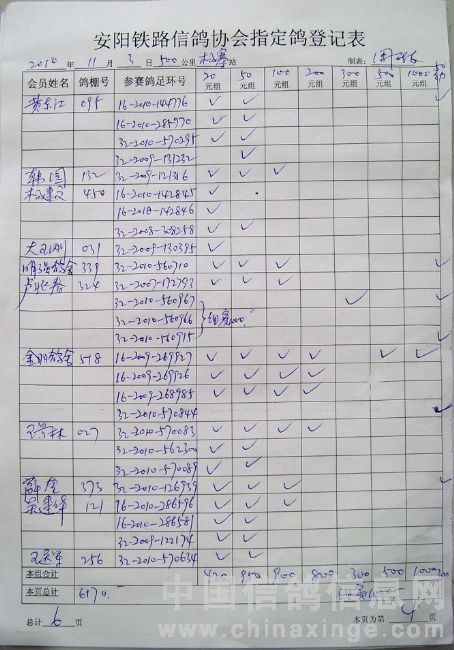 安阳铁路信鸽协会指定鸽登记表
2010 年 11 月 3 日 500 公里 站 制表：
会员姓名 鸽棚号 参赛鸽足环号 20元组 50元组 100元组 200元组 300元组 500元组 1000元组
黄东江 095 16-2010-144776 ✓ ✓
16-2010-285770 ✓ ✓
32-2010-570295 ✓ ✓
32-2009-131232 ✓
韩国 132 32-2009-121316 ✓ ✓ ✓
450 16-2010-142845 ✓
16-2010-142846 ✓
32-2008-308258 ✓ ✓
031 32-2009-130395 ✓
明强鸽舍 339 32-2010-560710 ✓ ✓ ✓
324 32-2009-192793 ✓ ✓ ✓
32-2010-560967 ✓
32-2010-560966
32-2010-560915
金明鸽舍 518 16-2009-269927 ✓ ✓ ✓ ✓ ✓ ✓
16-2009-269926 ✓ ✓ ✓ ✓
16-2009-268985 ✓ ✓ ✓ ✓
32-2010-570844
027 32-2010-570083 ✓ ✓ ✓ ✓
32-2010-562300 ✓ ✓
32-2010-570089 ✓ ✓
373 32-2010-126939 ✓ ✓ ✓
121 16-2010-286596 ✓ ✓ ✓
16-2010-286581 ✓ ✓
32-2009-122174 ✓ ✓
256 32-2010-570634 ✓ ✓
本组合计 420 900 800 300 500 1000
本页总计 6170.
总计 6 页 本页为第 4 页
中国信鸽信息网
www.chinaxinge.com